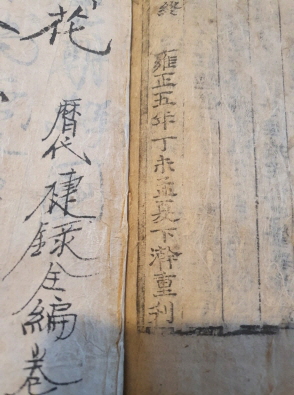 終
雍正五年丁未孟夏下澣重刊
花
歷代捷錄全編卷